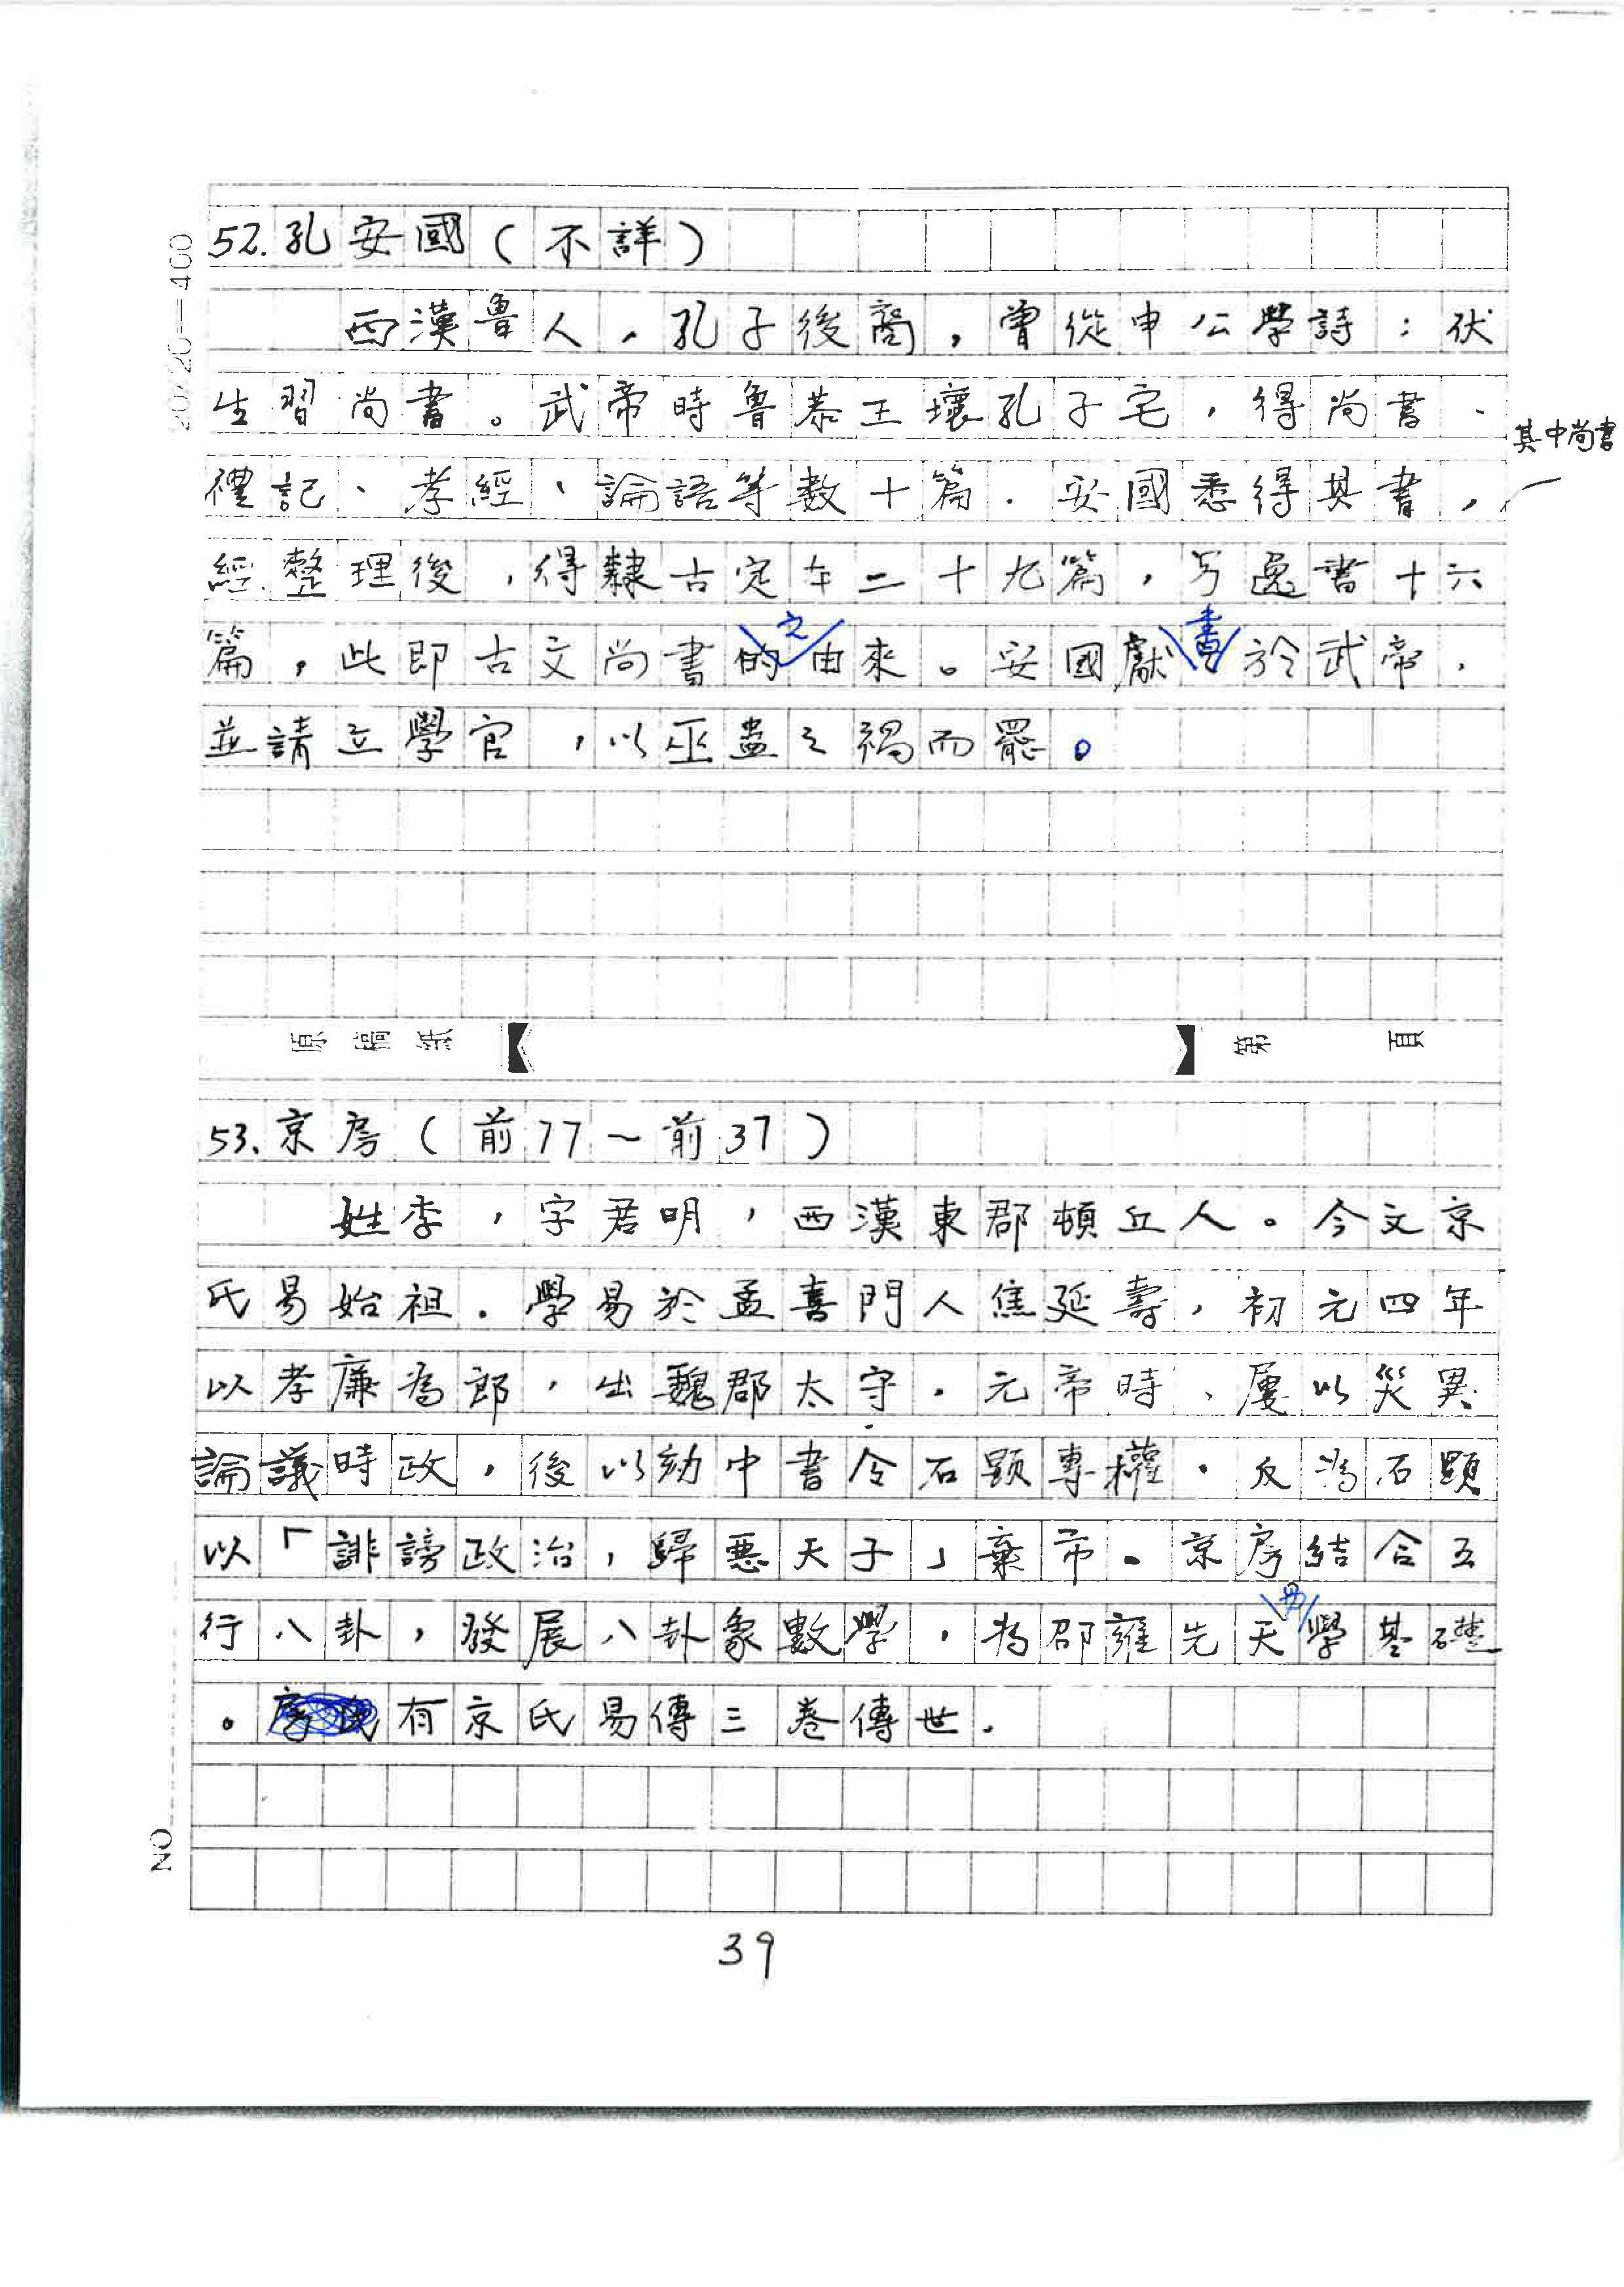 20×20=400
52.孔安國(不詳)
西漢魯人,孔子後裔,曾從申公學詩;伏
生習尚書。武帝時魯恭王壞孔子宅,得尚書、
其中尚書
禮記、孝經、論語等數十篇.安國悉得其書,
經整理後,得隸古定本二十九篇,另逸書十六
篇,此即古文尚書的之由來。安國獻書於武帝,
並請立學官,以巫蠱之禍而罷。
原稿紙 第 頁
53.京房(前77~前37)
姓李,字君明,西漢東郡頓丘人。今文京
氏易始祖.學易於孟喜門人焦延壽,初元四年
以孝廉為郎,出魏郡太守.元帝時、屢以災異
論議時政,後以劾中書令石顯專權.反為石顯
以「誹謗政治,歸惡天子」棄市.京房結合五
行八卦,發展八卦象數學,為邵雍先天學基礎
。有京氏易傳三卷傳世.
NO
39